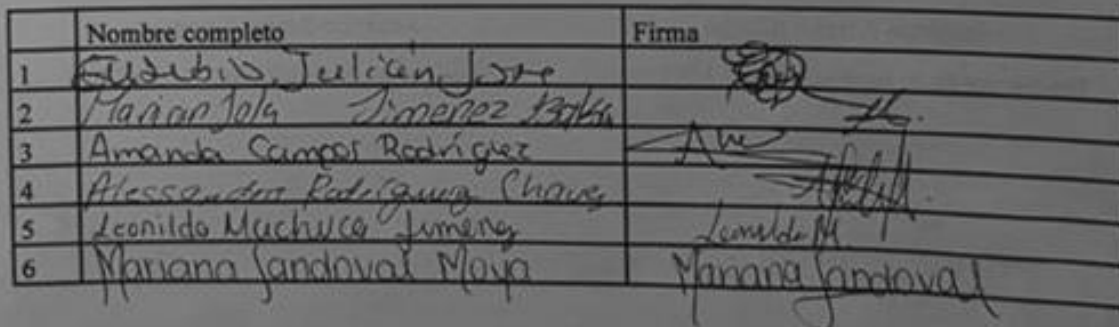 Nombre completo Firma
1 Eusebio Julian Jose
2 Marian Jimenez
3 Amanda Campos Rodríguez
4 Alessandra Rodríguez Chaves
5 Leonilda Machuca Jimenez Leonilda M.
6 Mariana Sandoval Moya Mariana Sandoval